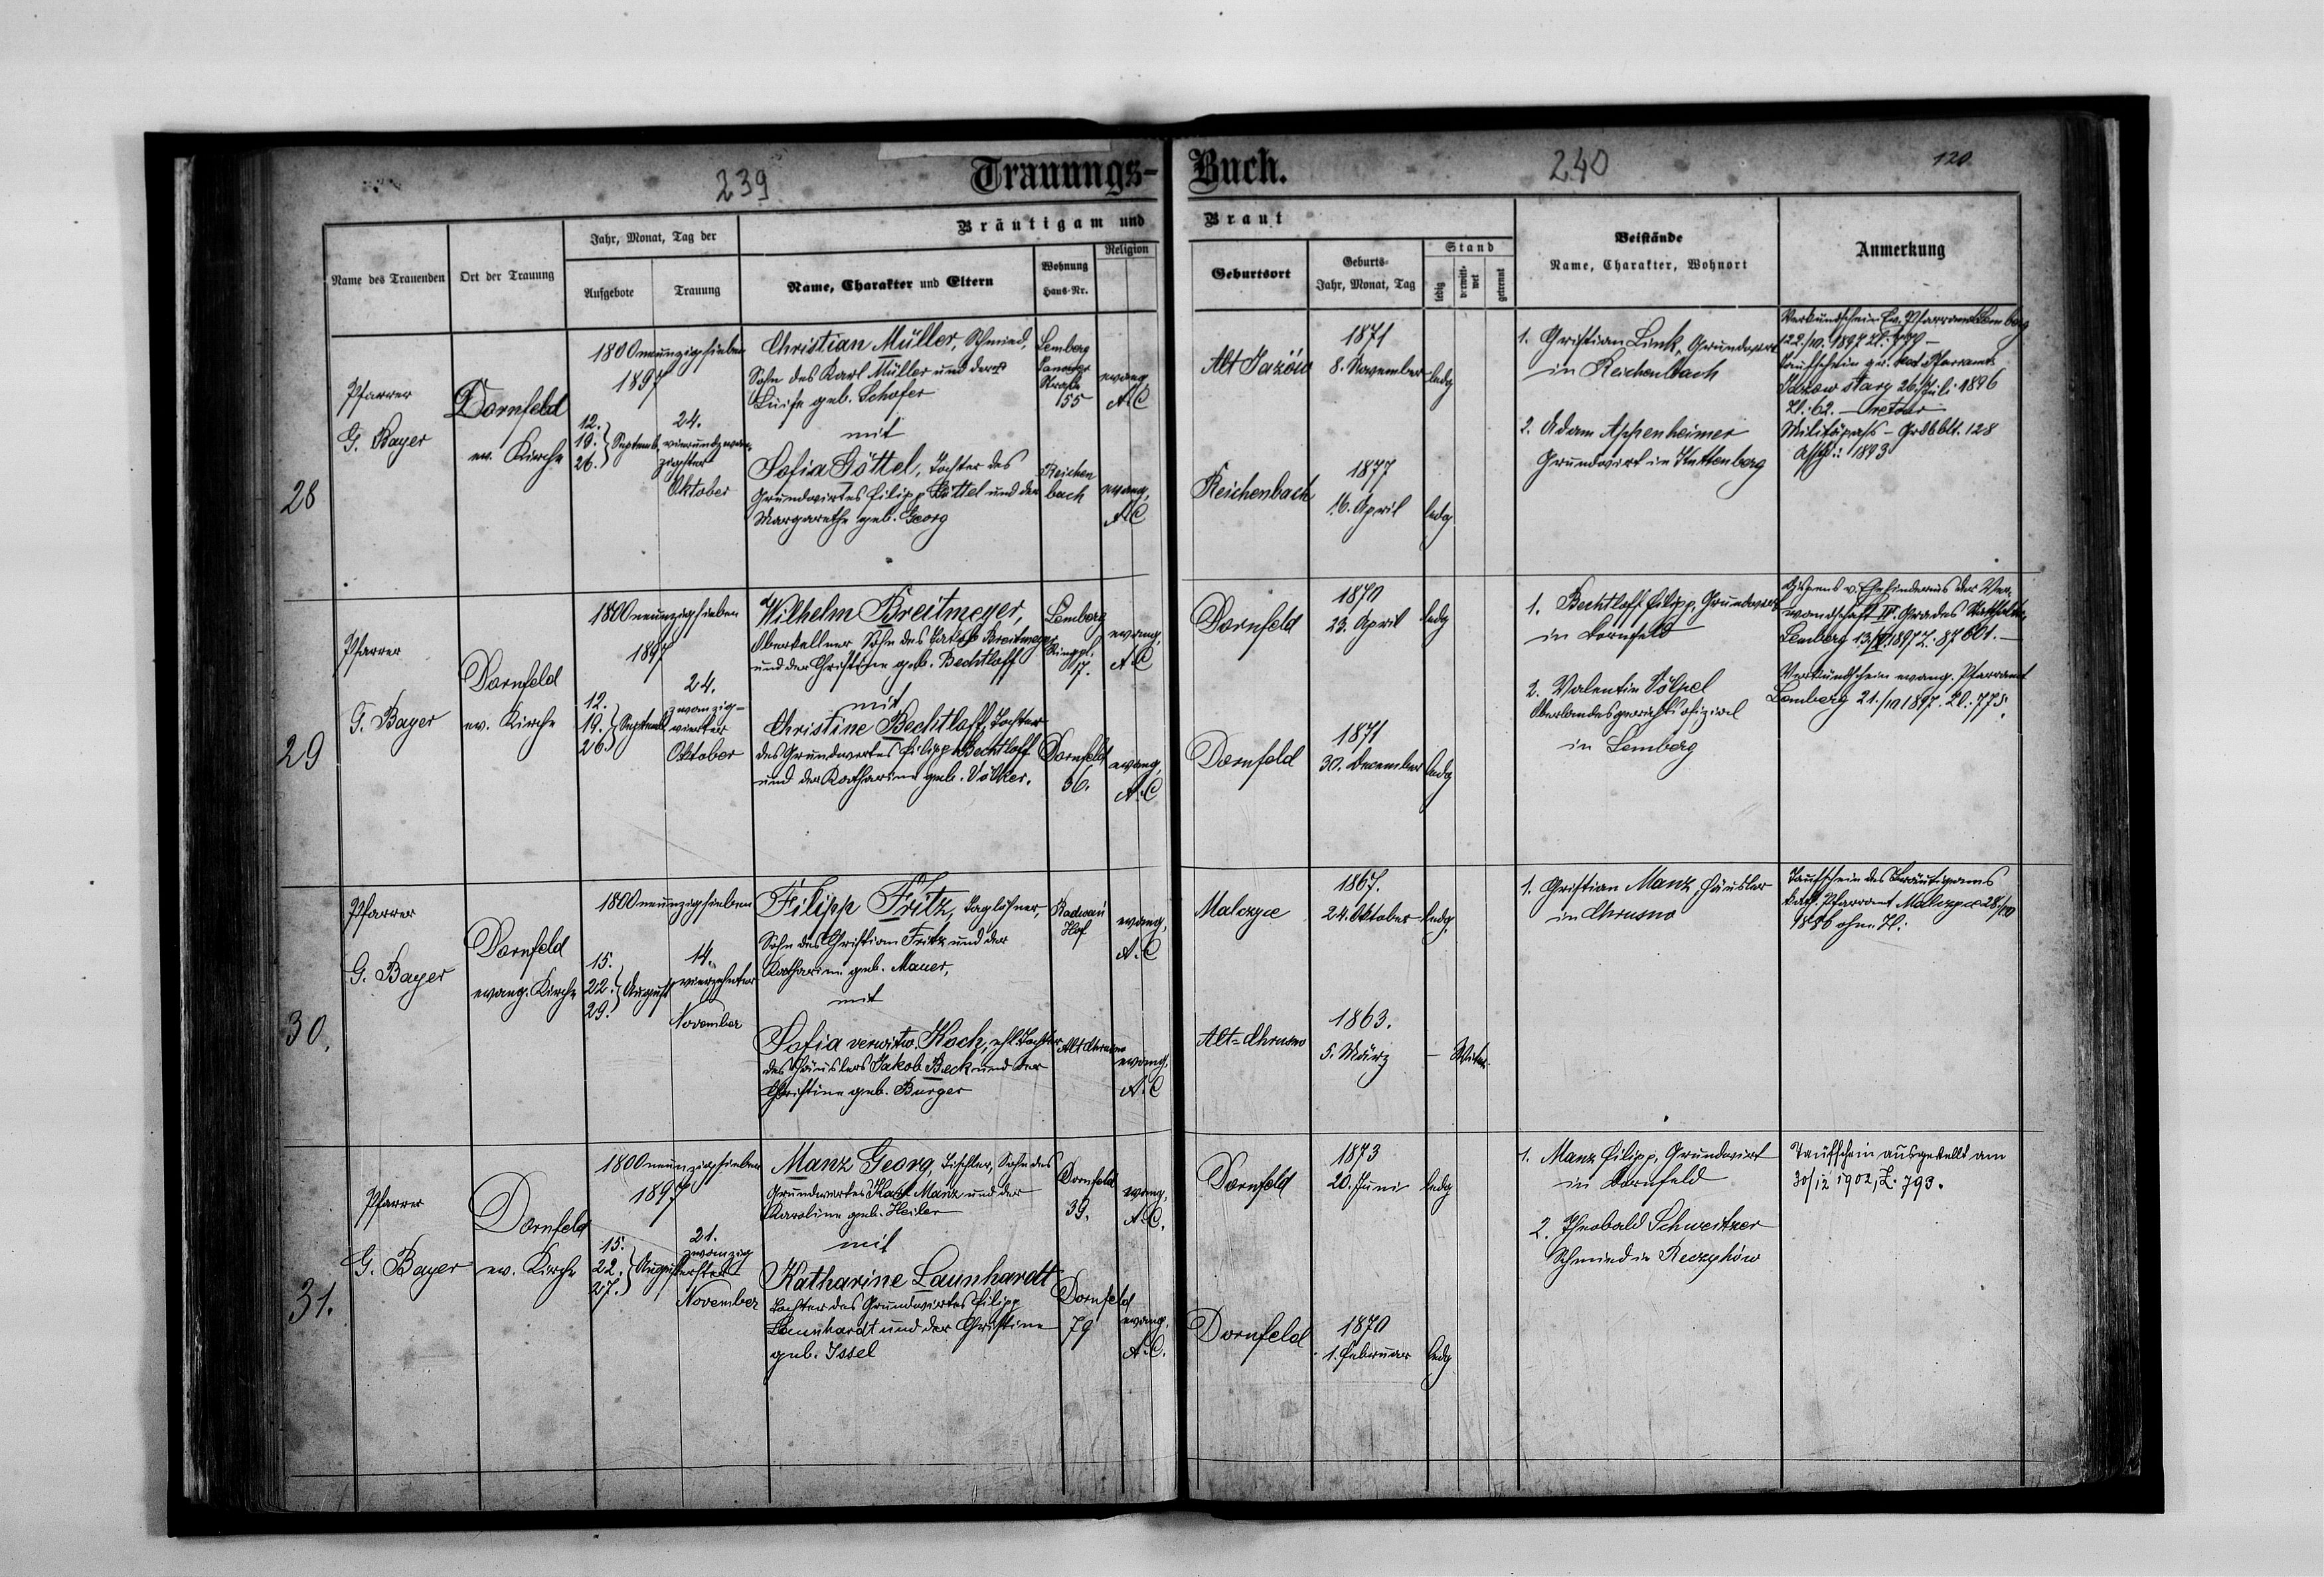 239
Trauungs-Buch.
240
120
Bräutigam und Braut
Name des Trauenden
Ort der Trauung
Jahr, Monat, Tag der
Aufgebote
Trauung
Name, Charakter und Eltern
Wohnung
Haus-Nr.
Religion
Geburtsort
Geburts-
Jahr, Monat, Tag
Stand
ledig
verwitt-
wet
getrennt
Beistände
Name, Charakter, Wohnort
Anmerkung
28
Pfarrer
G. Bayer
Dornfeld
ev. Kirche
1800neunzigsieben
1897
12.
19. Septemb.
26.
24.
vierundzwan-
zigster
Oktober
Christian Müller, Schmied,
Sohn des Karl Müller und der
Luise geb. Schofer
mit
Sofia Göttel, Tochter des
Grundwirtes Filipp Göttel und der
Margarethe geb. Georg
Lemberg
Straße
155
evang.
A.C
Reichen
bach
evang.
A.C
Alt Jazów
1871
8. November
ledig
Reichenbach
1877
16. April
ledig
1. Christian Link, Grundwirt
in Reichenbach
2. Adam Appenheimer
Grundwirt in Huttenberg
Verkundschein Ev. Pfarramt Lemberg
Taufschein Pfarramt
Jazow stary 26/Juli 1896
Zl: 62. — retour
Militärpass – Grdbblt. 128
1893
29
Pfarrer
G. Bayer
Dornfeld
ev. Kirche
1800neunzigsieben
1897
12.
19. Septemb.
26.
24.
zwanzig-
vierter
Oktober
Wilhelm Breitmeyer,
Oberkellner Sohn des Jakob Breitmeyer
und der Christine geb. Bechtloff
mit
Christine Bechtloff, Tochter
des Grundwirtes Filipp Bechtloff
und der Katharina geb. Völker.
Lemberg
Ringpl.
17.
evang.
A.C
Dornfeld
36.
evang.
A.C
Dornfeld
1870
23. April
ledig
Dornfeld
1871
30. December
ledig
1. Bechtloff Filipp, Grundwirt
in Dornfeld
2. Valentin Völpel
Oberlandesgerichtsofizial
in Lemberg
Dispens v. Ehehindernis der Ver-
wandschaft Grades
Lemberg
Verkundschein evang. Pfarramt
Lemberg 21./10 1897. Zl.: 775.
30.
Pfarrer
G. Bayer
Dornfeld
evang. Kirche
1800neunzigsieben
15.
22. August
29.
14.
vierzehnter
November
Filipp Fritz, Taglöhner,
Sohn des Christian Fritz und der
Katharina geb. Mauer,
mit
Sofia verwitw. Koch, ehl. Tochter
des Häuslers Jakob Beck und der
Christine geb. Burger
Radwań
Hof
evang.
A.C
Alt Chrusno
evang.
A.C
Malczyce
1867.
24. Oktober
ledig
Alt-Chrusno
1863.
5. März
— Witw.
1. Christian Manz, Häusler
in Chrusno
Taufschein des Bräutigams
Pfarramt Malczyce 28/10
ohne Zl:
31.
Pfarrer
G. Bayer
Dornfeld
ev. Kirche
1800neunzigsieben
1897
15.
22. August
27.
21.
zwanzig
erster
November
Manz Georg, Tischler, Sohn des
Grundwirtes Karl Manz und der
Karoline geb. Heiler
mit
Katharine Launhardt
Tochter des Grundwirtes Filipp
Launhardt und der Christine
geb. Issel
Dornfeld
39.
evang.
A.C.
Dornfeld
79
evang.
A.C.
Dornfeld
1873
20. Juni
ledig
Dornfeld
1870
1. Februar
ledig
1. Manz Filipp, Grundwirt
in Dornfeld
2. Theobald Schweitzer
Schmied in Reczyhów
Taufschein ausgestellt am
30/12 1902, Z. 793.